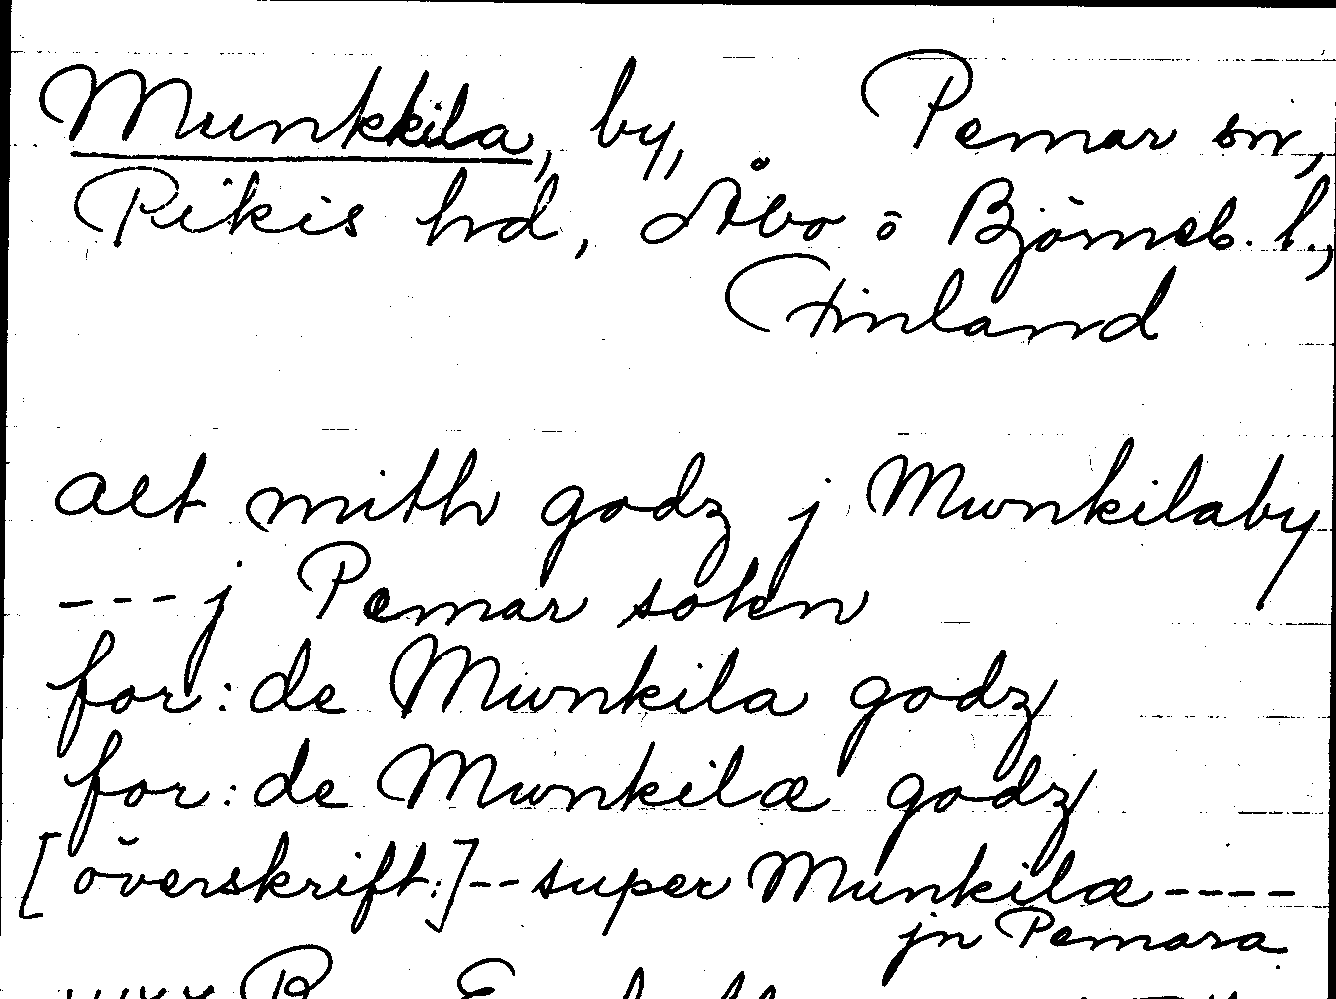 Munkkila, by, Pemar sn,
Pikis hd, Åbo o Björneb. l.,
Finland
alt mith godz j Munkilaby
---j Pemar sokn
for:de Munkila godz
for:de Munkilæ godz
[överskrift:]--super Munkilæ----
jn Pemara